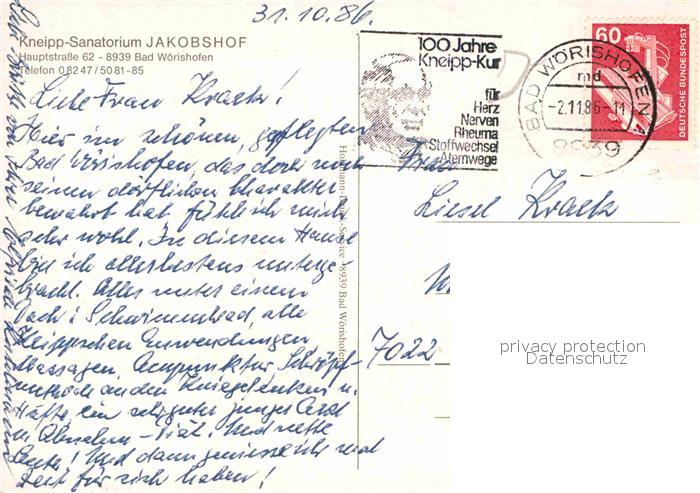 31.10.86.
Kneipp-Sanatorium JAKOBSHOF
Hauptstraße 62 - 8939 Bad Wörishofen
Telefon 0 82 47 / 50 81-85
Liebe Frau Kraek!
Hier im schönen, gepflegten
Bad Wörishofen, das doch noch
seinen dörflichen Charakter
bewahrt hat fühl ich mich
sehr wohl. In diesem Hause
bin ich allerbestens unterge-
bracht. Alles unter einem
Dach: Schwimmbad, alle
Kneippschen Anwendungen,
Massagen, Akupunktur, Schröpf-
methode an den Kniegelenken u.
Hüfte, ein sehr guter junger Arzt
u. Abnahm-Diät. Und nette
Leute! Und dann genieße ich mal
Zeit für sich haben!
Hofmann-Druck-Service · 8939 Bad Wörishofen
100 Jahre
Kneipp-Kur
für
Herz
Nerven
Rheuma
Stoffwechsel
Atemwege
BAD WÖRISHOFEN 1
md
-2.11.86-11
8939
60
DEUTSCHE BUNDESPOST
Frau
Liesel Kraek
7022
privacy protection
Datenschutz